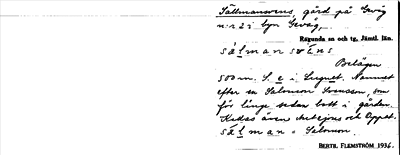 Sållmansvens, gård på Gevig
n:r 2 i byn Gevåg,
Ragunda sn och tg, Jämtl. län.
sálmansvɛ́ns
Belägen
500 m. S. e i Singnet. Namnet
efter en Salomon Svensson, som
för länge sedan bott i gården.
Kallas även Anteljons och Oppet.
sálman = Salomon.
BERTIL FLEMSTRÖM 1936.